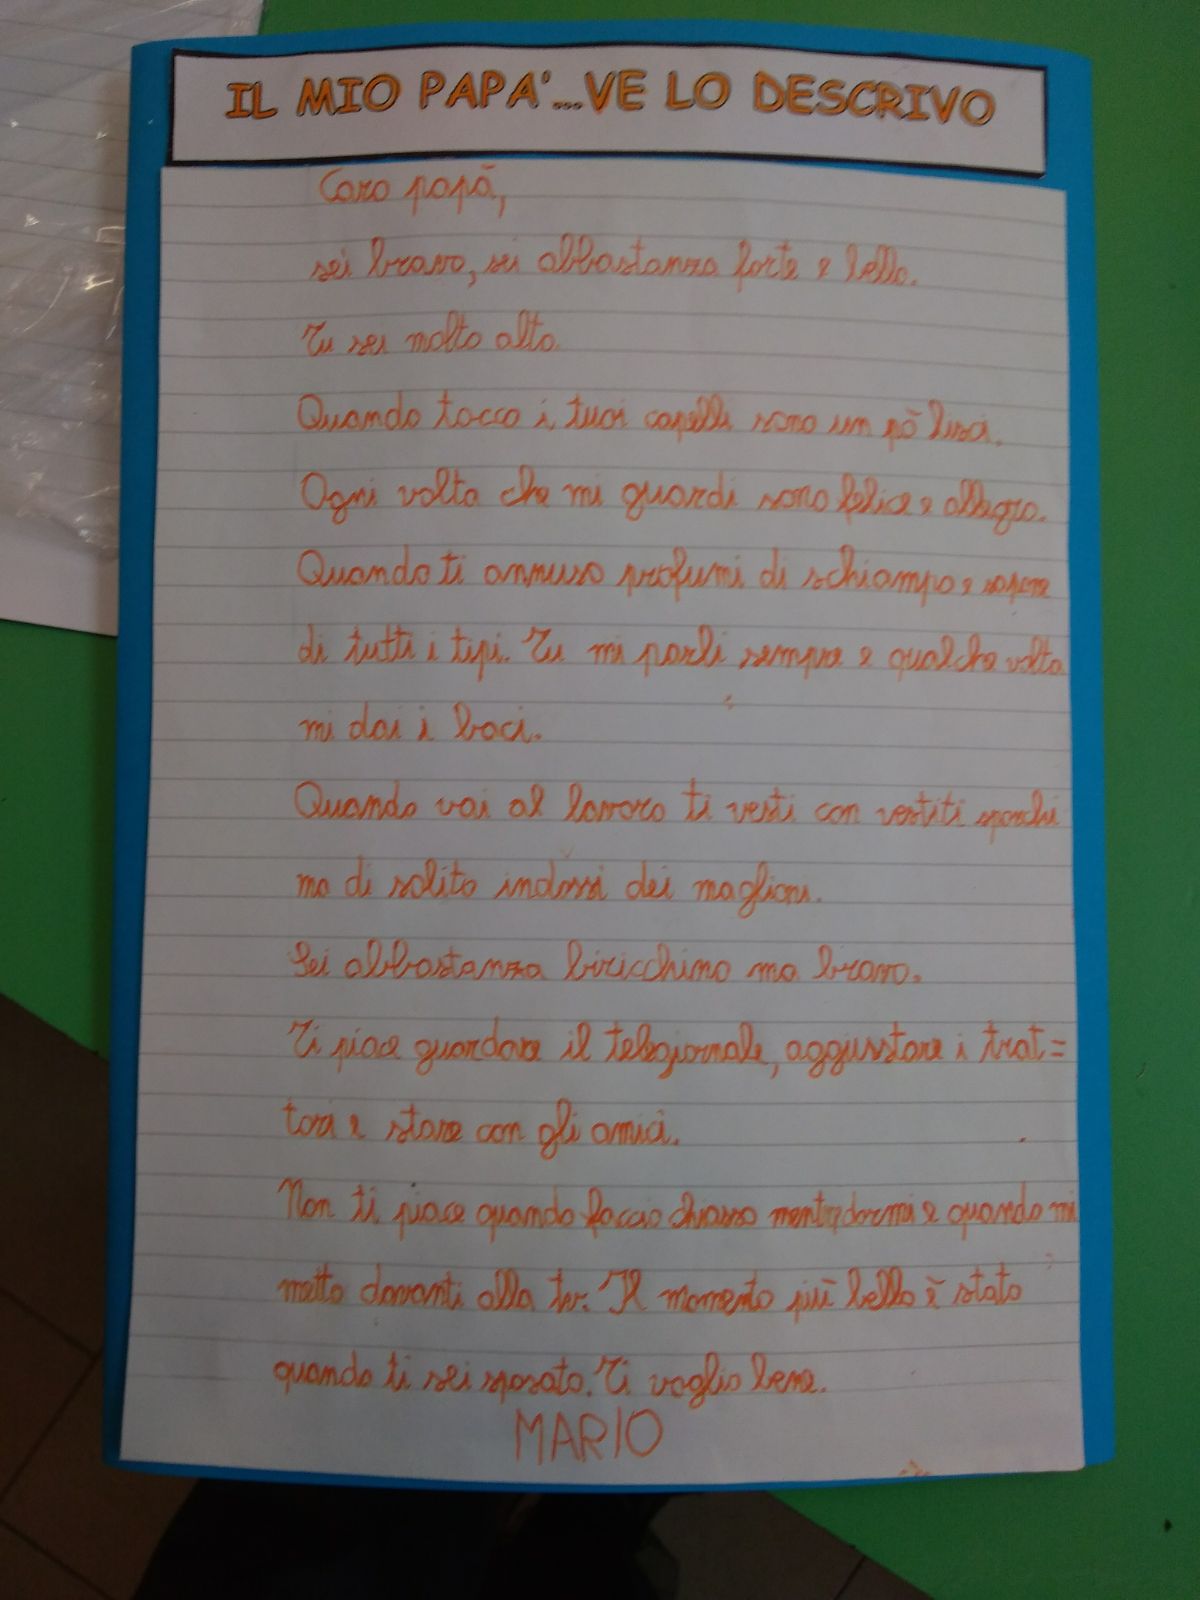 IL MIO PAPA'...VE LO DESCRIVO
Caro papà,
sei bravo, sei abbastanza forte e bello.
Tu sei molto alto.
Quando tocco i tuoi capelli sono un pò lisci.
Ogni volta che mi guardi sono felice e allegro.
Quando ti annuso profumi di schiampo e sapone
di tutti i tipi. Tu mi parli sempre e qualche volta
mi dai i baci.
Quando vai al lavoro ti vesti con vestiti sporchi
ma di solito indossi dei maglioni.
Sei abbastanza biricchino ma bravo.
Ti piace guardare il telegiornale, aggiusstare i trat=
tori e stare con gli amici.
Non ti piace quando faccio chiasso mentre dormi e quando mi
metto davanti alla tv. Il momento più bello è stato
quando ti sei sposato. Ti voglio bene.
MARIO